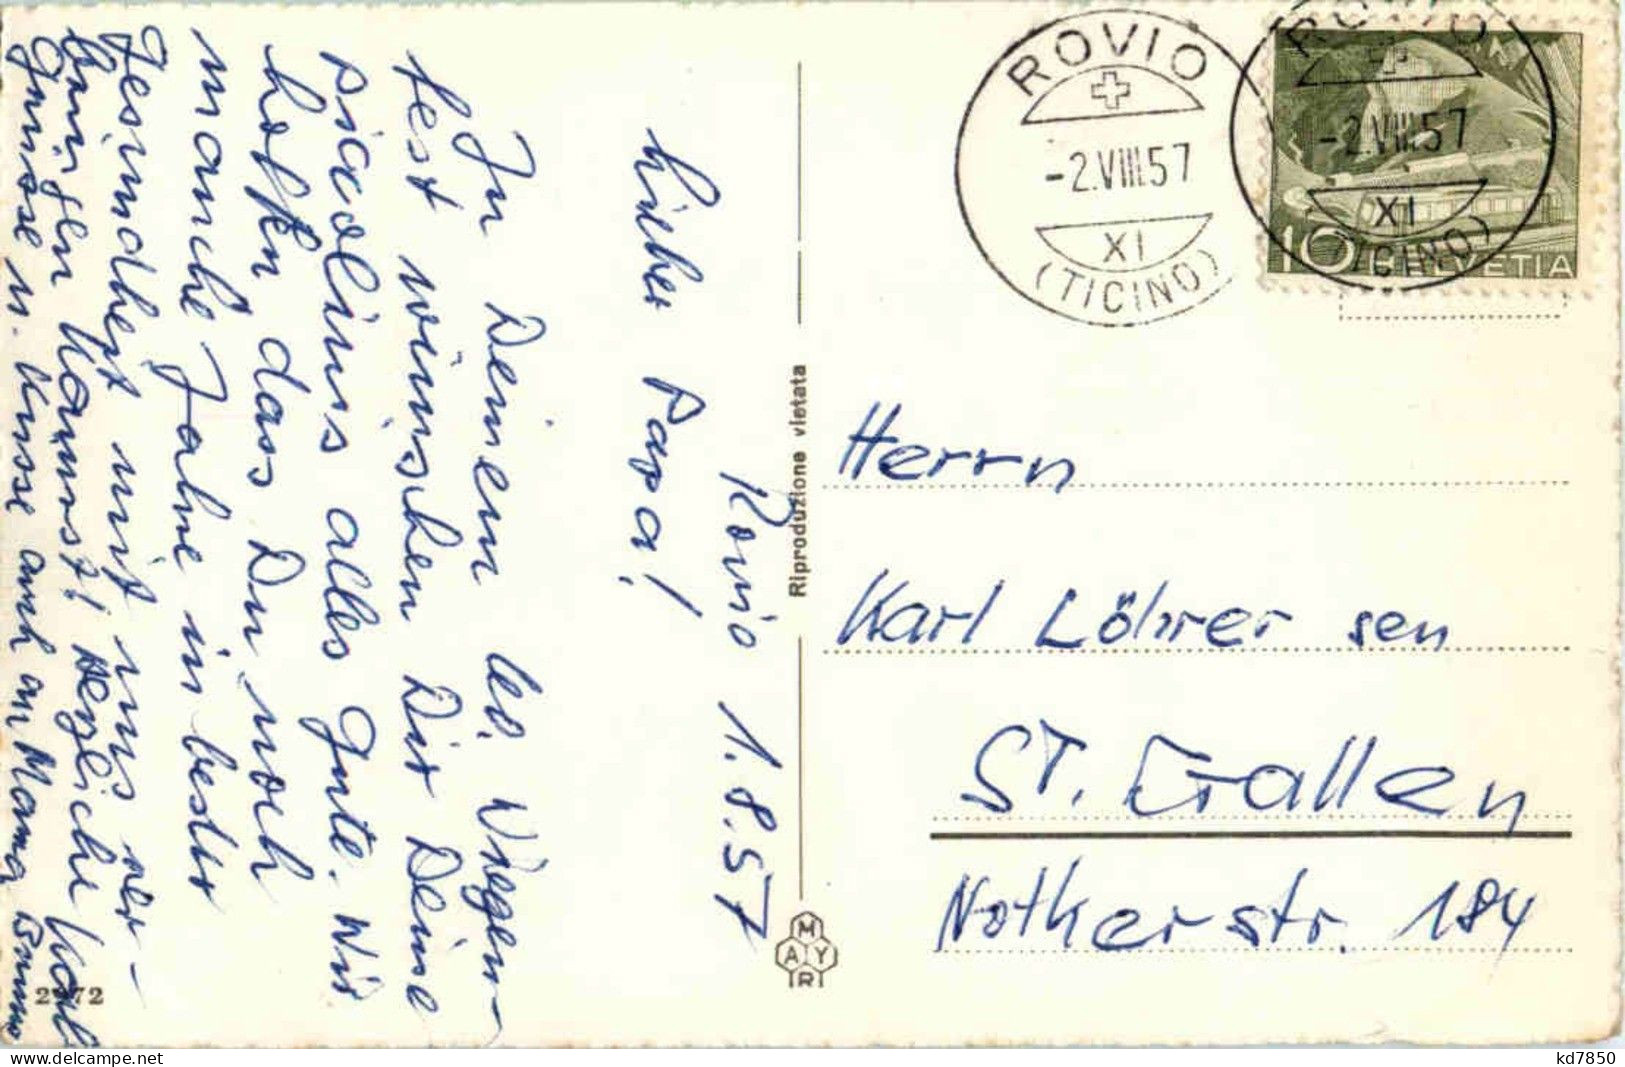 Rovio 1.8.57
Lieber Papa!
In Deinem 60. Wiegen-
fest wünschen Dir Deine
alles Gute. Wir
hoffen, dass Du noch
manche Jahre in bester
Gesundheit mit uns ver-
bringen kannst! Herzliche
Grüsse u. Küsse auch an Mama
ROVIO
-2.VIII.57
XI
(TICINO)
ROVIO
-2.VIII.57
XI
(TICINO)
10 HELVETIA
Riproduzione vietata
Herrn
Karl Löhrer sen
ST. Gallen
Notkerstr. 184
MAYR
delcampe.net
kd7850